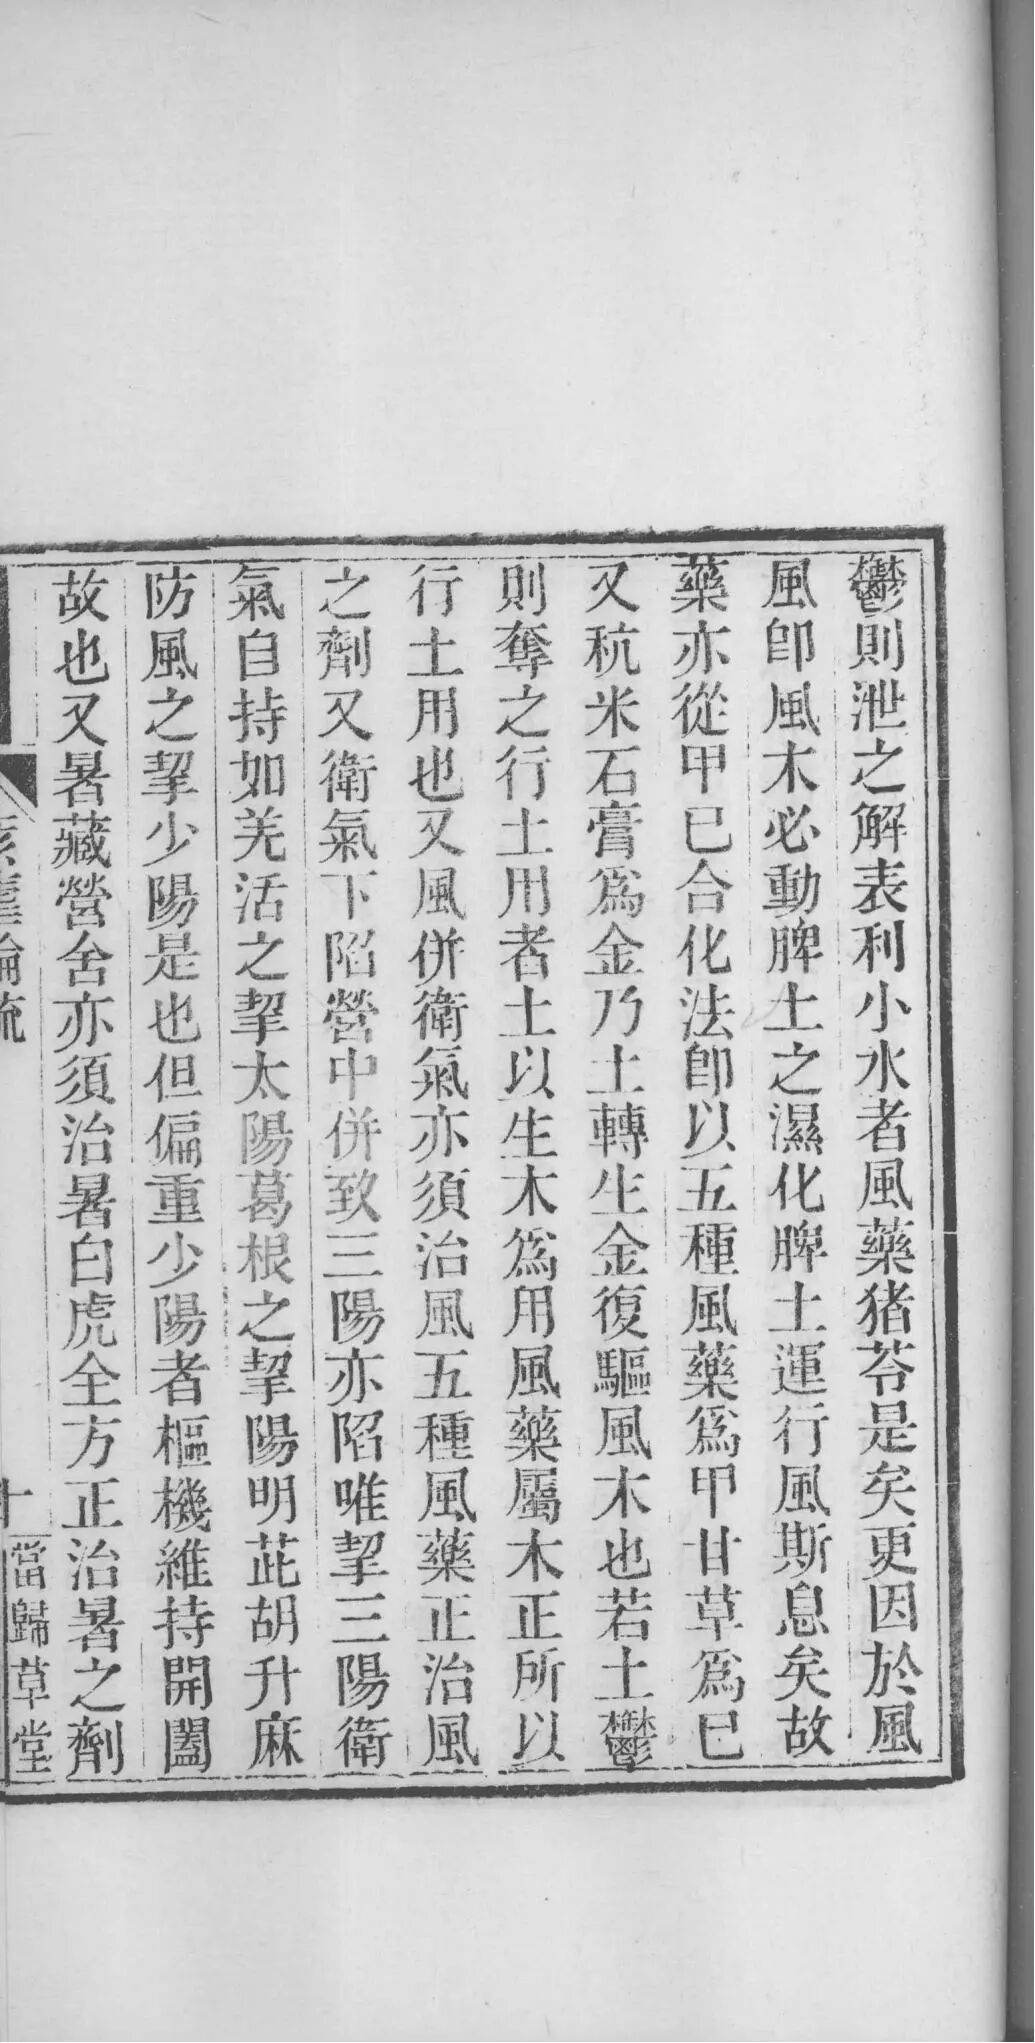 鬱則泄之解表利小水者風藥猪苓是矣更因於風
風卽風木必動脾土之濕化脾土運行風斯息矣故
藥亦從甲巳合化法卽以五種風藥爲甲甘草爲巳
又秔米石膏爲金乃土轉生金復驅風木也若土鬱
則奪之行土用者土以生木爲用風藥屬木正所以
行土用也又風併衛氣亦須治風五種風藥正治風
之劑又衛氣下陷營中併致三陽亦陷唯挈三陽衛
氣自持如羌活之挈太陽葛根之挈陽明茈胡升麻
防風之挈少陽是也但偏重少陽者樞機維持開闔
故也又暑藏營舍亦須治暑白虎全方正治暑之劑
十 當歸草堂